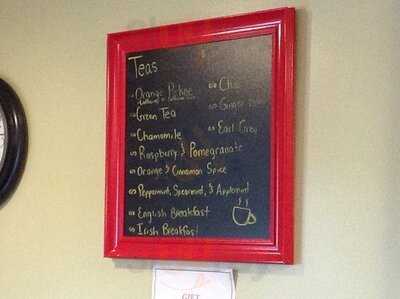 Teas
Orange Pekoe
Green Tea
Chamomile
Raspberry & Pomegranate
Orange & Cinnamon Spice
Peppermint, Spearmint, &
English Breakfast
Irish Breakfast
Chai
Ginger
Earl Grey
GIFT